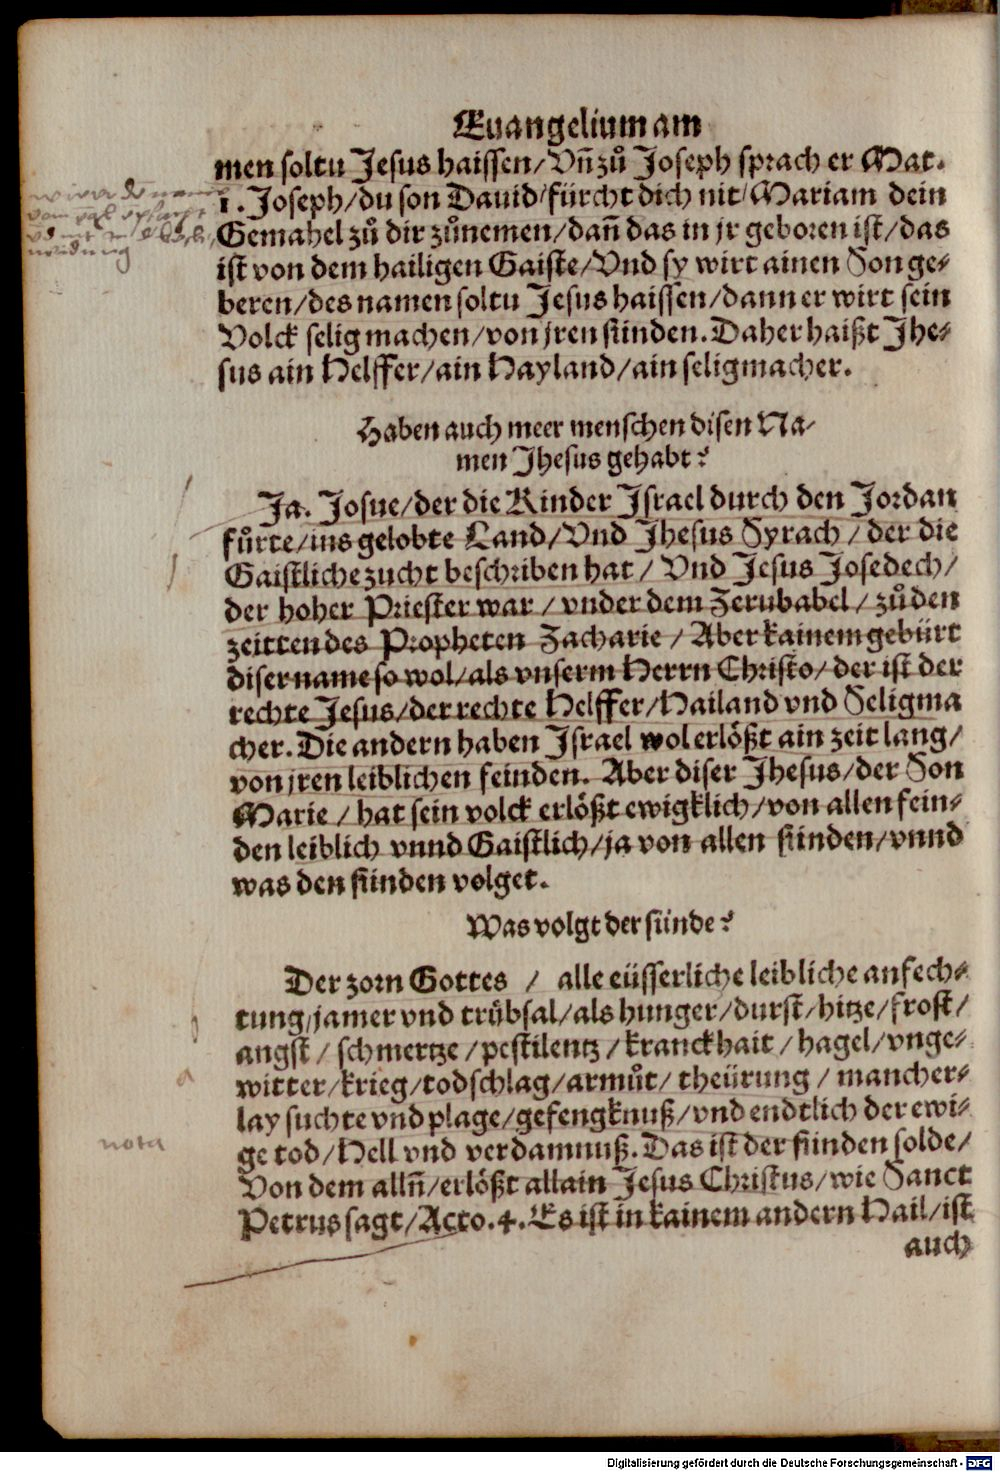 Euangelium am
men soltu Jesus haissen/Vñ zů Joseph sprach er Mat.
1. Joseph/du son Dauid/fürcht dich nit/Mariam dein
Gemahel zů dir zůnemen/dañ das in jr geboren ist/das
ist von dem hailigen Gaiste/Vnd sy wirt ainen Son ge-
beren/des namen soltu Jesus haissen/dann er wirt sein
Volck selig machen/von jren sünden. Daher haißt Jhe-
sus ain Helffer/ain Hayland/ain seligmacher.
Haben auch meer menschen disen Na-
men Jhesus gehabt?
Ja. Josue/der die Kinder Israel durch den Jordan
fůrte/ins gelobte Land/Vnd Jhesus Syrach/der die
Gaistliche zucht beschriben hat/Vnd Jesus Josedech/
der hoher Priester war/vnder dem Zerubabel/zů den
zeitten des Propheten Zacharie/Aber kainem gebürt
diser name so wol/als vnserm Herrn Christo/der ist der
rechte Jesus/der rechte Helffer/Hailand vnd Seligma
cher. Die andern haben Israel wol erlößt ain zeit lang/
von jren leiblichen feinden. Aber diser Jhesus/der Son
Marie/hat sein volck erlößt ewigklich/von allen fein-
den leiblich vnnd Gaistlich/ja von allen sünden/vnnd
was den sünden volget.
Was volgt der sünde?
Der zorn Gottes/alle eüsserliche leibliche anfech-
tung/jamer vnd trübsal/als hunger/durst/hitze/frost/
angst/schmertze/pestilentz/kranckhait/hagel/vnge-
witter/krieg/todschlag/armůt/theürung/mancher-
lay suchte vnd plage/gefengknuß/vnd endtlich der ewi-
nota
ge tod/Hell vnd verdamnuß. Das ist der sünden solde/
Von dem allñ/erlößt allain Jesus Christus/wie Sanct
Petrus sagt/Acto. 4. Es ist in kainem andern Hail/ist
auch
Digitalisierung gefördert durch die Deutsche Forschungsgemeinschaft - DFG